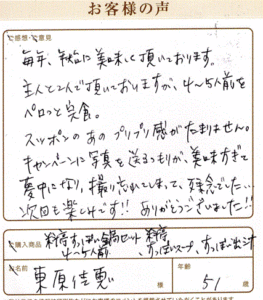 お客様の声
ご感想・ご意見
毎年、美味しく頂いております。
主人と2人で頂いておりますが、4〜5人前を
ペロッと完食。
スッポンのあのプリプリ感がたまりません。
キャンペーンに写真を送るつもりが、美味すぎて
夢中になり、撮り忘れてしまって、残念でした…
次回も楽しみです!! ありがとうございました!!
ご購入商品
料亭すっぽん鍋セット 料亭
4〜5人前 すっぽんスープ、すっぽん出汁
お名前
年齢
東原佳恵
51 歳